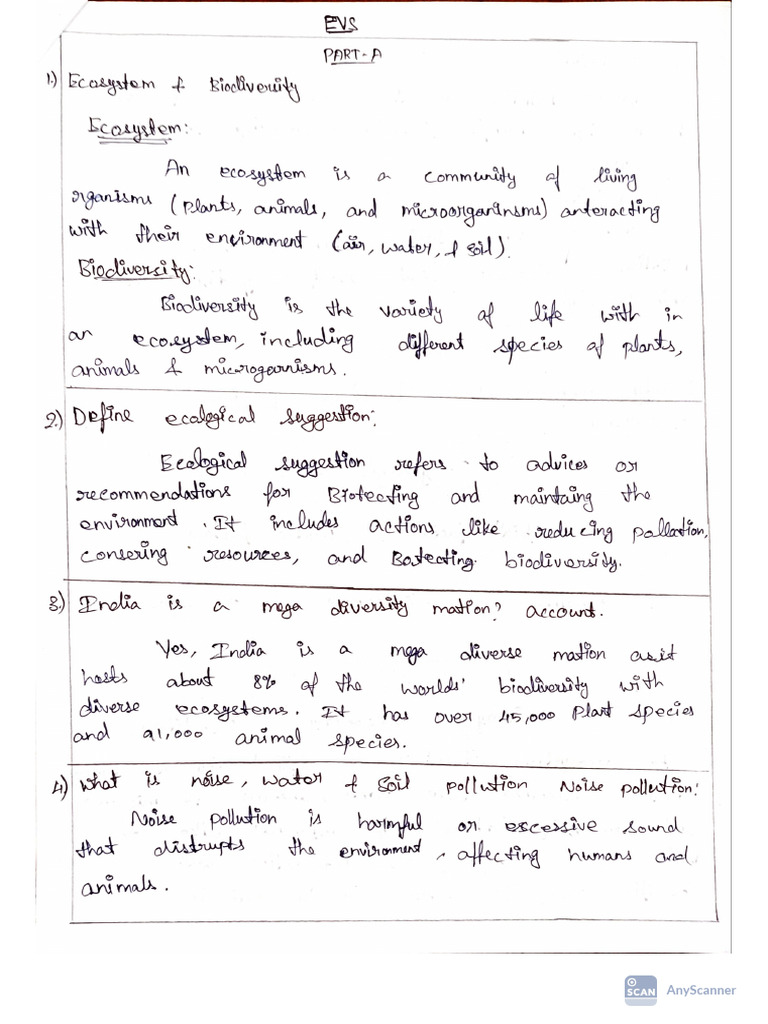 EVS
PART-A
1.) Ecosystem & Biodiversity
Ecosystem:
An ecosystem is a community of living
organisms (plants, animals, and microorganinsms) anteracting
with their environment (air, water, & soil).
Biodiversity:
Biodiversity is the variety of life with in
an ecosystem, including different species of plants,
animals & microgornisms.
2.) Define ecological suggestion:
Ecological suggestion refers to advices or
recommendations for Biotecting and maintaing the
environment. It includes actions like reducing pollation,
consering resources, and Bastecting biodiversity.
3.) India is a mega diversity mation? account.
Yes, India is a mega diverse mation as it
hosts about 8% of the worlds' biodiversity with
diverse ecosystems. It has over 45,000 Plant species
and 91,000 animal species.
4) What is noise, water & soil pollution Noise pollution:
Noise pollution is harmful or escessive sound
that distrupts the environment, affecting humans and
animals.
SCAN AnyScanner